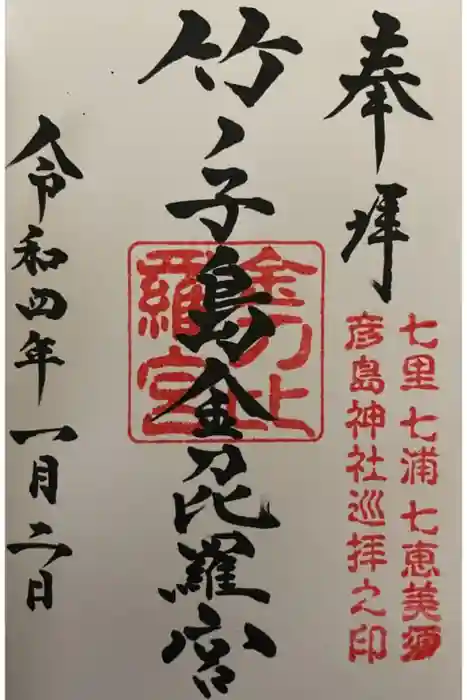 奉拝
七里七浦七恵美須
彦島神社巡拝之印
竹ノ子島金毘羅宮
金刀比
羅宮
令和四年一月二日